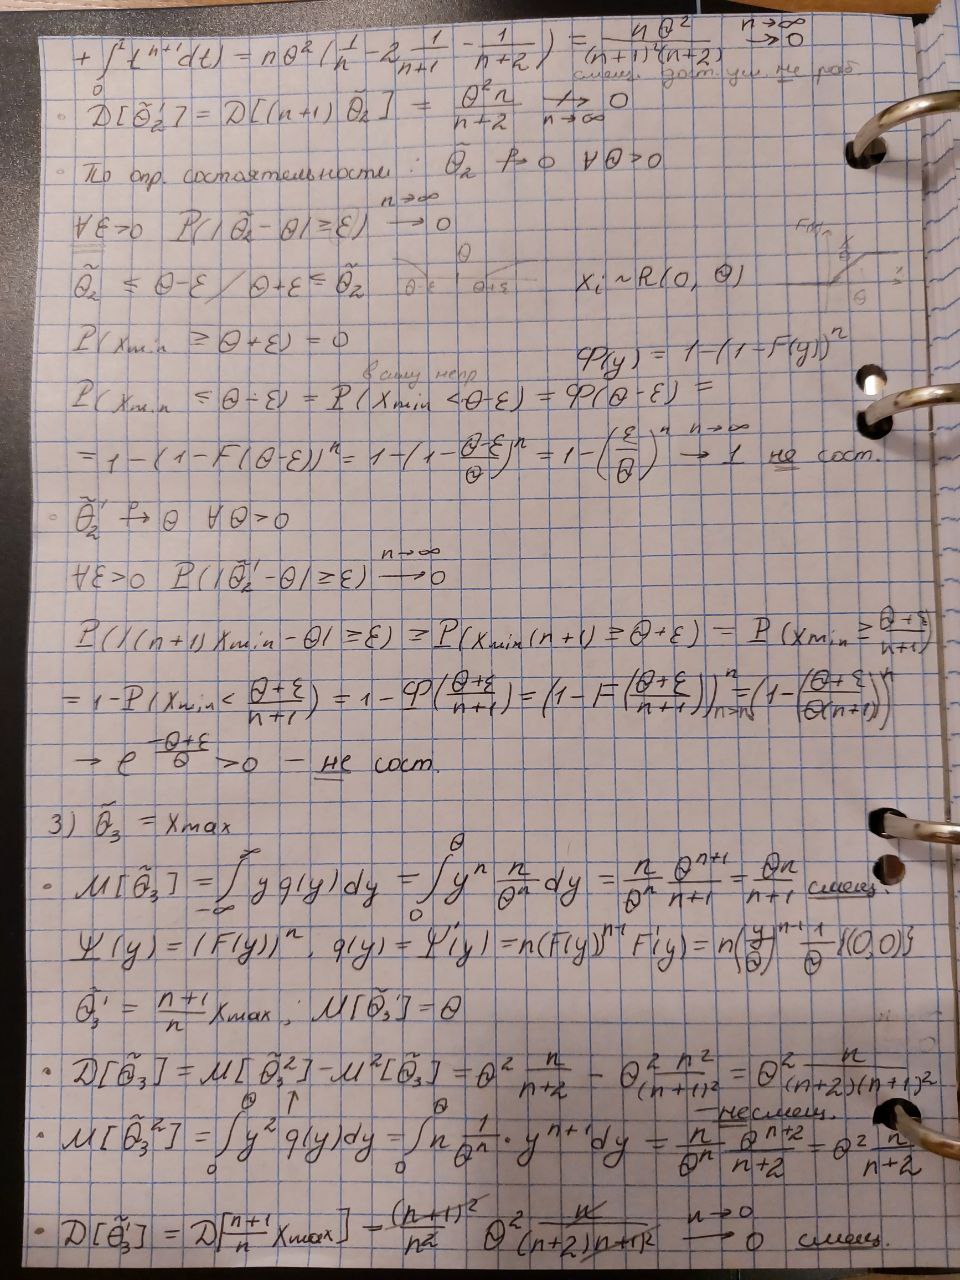 + ∫₀¹ t^{n+1} dt) = nθ² (1/n − 2 1/(n+1) − 1/(n+2)) = nθ²/((n+1)²(n+2)) →^{n→∞} 0
смещ. дост. усл. не раб.
· D[θ̃₂'] = D[(n+1) θ̃₂] = θ²n/(n+2) ↛_{n→∞} 0
· По опр. состоятельности : θ̃₂ →^P θ ∀θ>0
∀ε>0 P(|θ̃₂ − θ| ≥ ε) →^{n→∞} 0
θ̃₂ ≤ θ−ε / θ+ε ≤ θ̃₂ θ−ε θ θ+ε x_i ~ R(0, θ)
P(x_min ≥ θ+ε) = 0 Φ(y) = 1−(1−F(y))^n
в силу непр.
P(x_min ≤ θ−ε) = P(x_min < θ−ε) = Φ(θ−ε) =
= 1−(1−F(θ−ε))^n = 1−(1−(θ−ε)/θ)^n = 1−(ε/θ)^n →^{n→∞} 1 не сост.
· θ̃₂' →^P θ ∀θ>0
∀ε>0 P(|θ̃₂' − θ| ≥ ε) →^{n→∞} 0
P(|(n+1) x_min − θ| ≥ ε) ≥ P(x_min (n+1) ≥ θ+ε) = P(x_min ≥ (θ+ε)/(n+1))
= 1−P(x_min < (θ+ε)/(n+1)) = 1−Φ((θ+ε)/(n+1)) = (1−F((θ+ε)/(n+1)))^n = (1−((θ+ε)/(θ(n+1))))^n
→ e^{−(θ+ε)/θ} > 0 — не сост.
3) θ̃₃ = x_max
· M[θ̃₃] = ∫_{−∞}^{∞} y g(y) dy = ∫₀^θ y^n n/θ^n dy = n/θ^n θ^{n+1}/(n+1) = θn/(n+1) смещ.
Ψ(y) = (F(y))^n, g(y) = Ψ'(y) = n(F(y))^{n−1} F'(y) = n(y/θ)^{n−1} 1/θ {(0,θ)}
θ̃₃' = (n+1)/n x_max ; M[θ̃₃'] = θ
· D[θ̃₃] = M[θ̃₃²] − M²[θ̃₃] = θ² n/(n+2) − θ² n²/(n+1)² = θ² n/((n+2)(n+1)²)
— несмещ.
· M[θ̃₃²] = ∫₀^θ y² g(y) dy = ∫₀^θ n 1/θ^n · y^{n+1} dy = n/θ^n θ^{n+2}/(n+2) = θ² n/(n+2)
· D[θ̃₃'] = D[(n+1)/n x_max] = (n+1)²/n² θ² n/((n+2)(n+1)²) →^{n→0} 0 смещ.